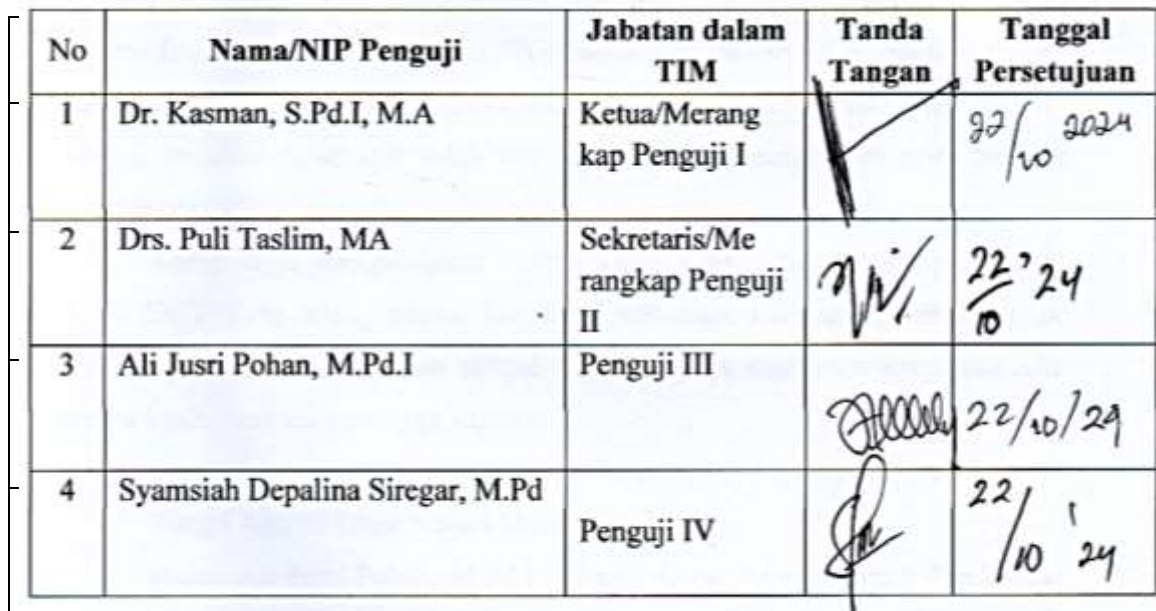 No Nama/NIP Penguji Jabatan dalam TIM Tanda Tangan Tanggal Persetujuan
1 Dr. Kasman, S.Pd.I, M.A Ketua/Merang
kap Penguji I 22/10 2024
2 Drs. Puli Taslim, MA Sekretaris/Me
rangkap Penguji
II 22/10 '24
3 Ali Jusri Pohan, M.Pd.I Penguji III 22/10/24
4 Syamsiah Depalina Siregar, M.Pd
Penguji IV 22/10 '24